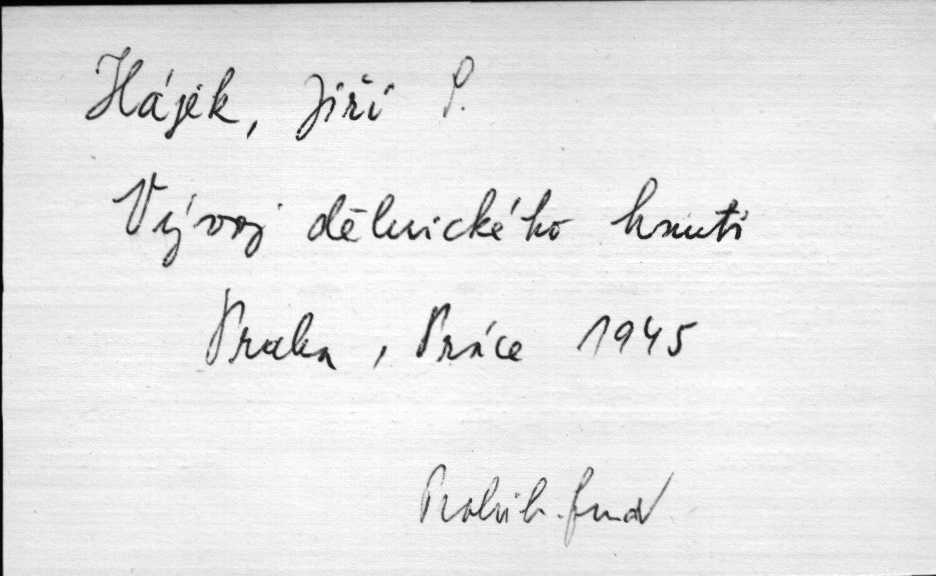 Hájek, Jiří S.
Vývoj dělnického hnutí
Praha, Práce 1945
Prohib. fond